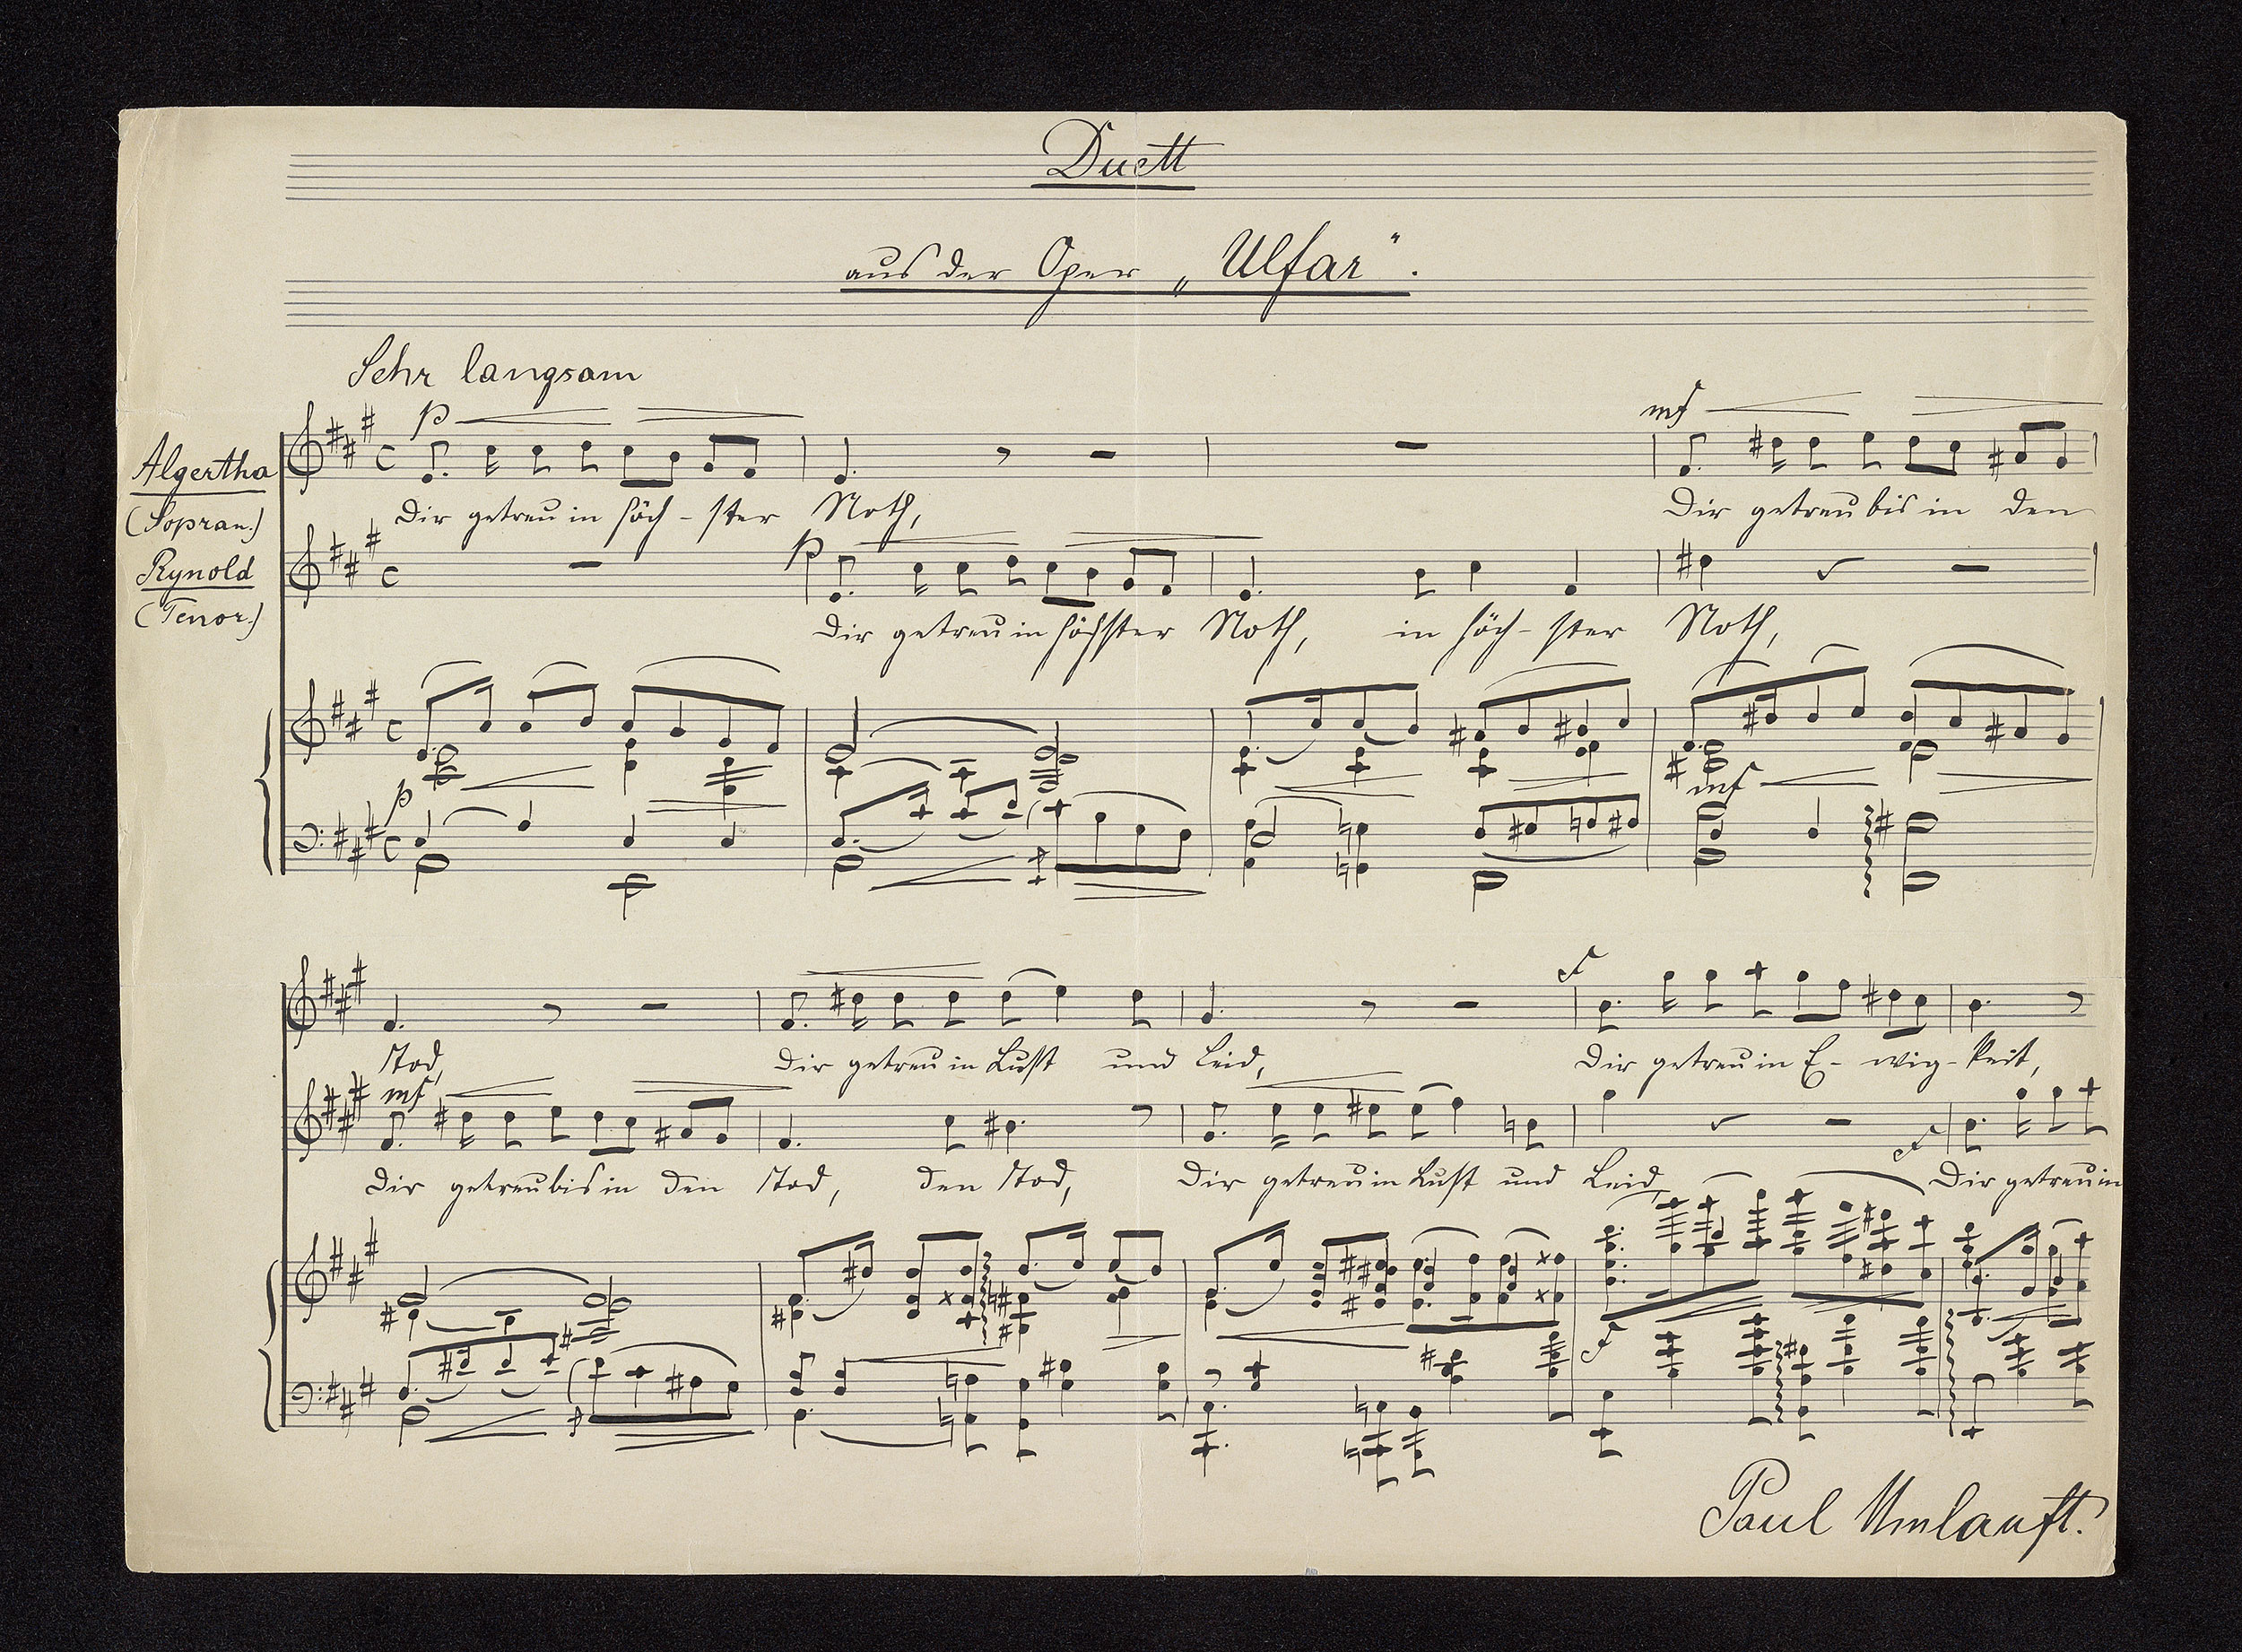 Duett
aus der Oper „Ulfar“.
Sehr langsam
p
mf
Algertha
(Sopran.)
Dir getreu in höch-ster Noth, Dir getreu bis in den
p
Rynold
(Tenor.)
Dir getreu in höchster Noth, in höch-ster Noth,
p
mf
f
Tod, Dir getreu in Lust und Leid, Dir getreu in E-wig-keit,
mf
f
Dir getreu bis in den Tod, den Tod, Dir getreu in Lust und Leid, Dir getreu in
f
Paul Umlauft.